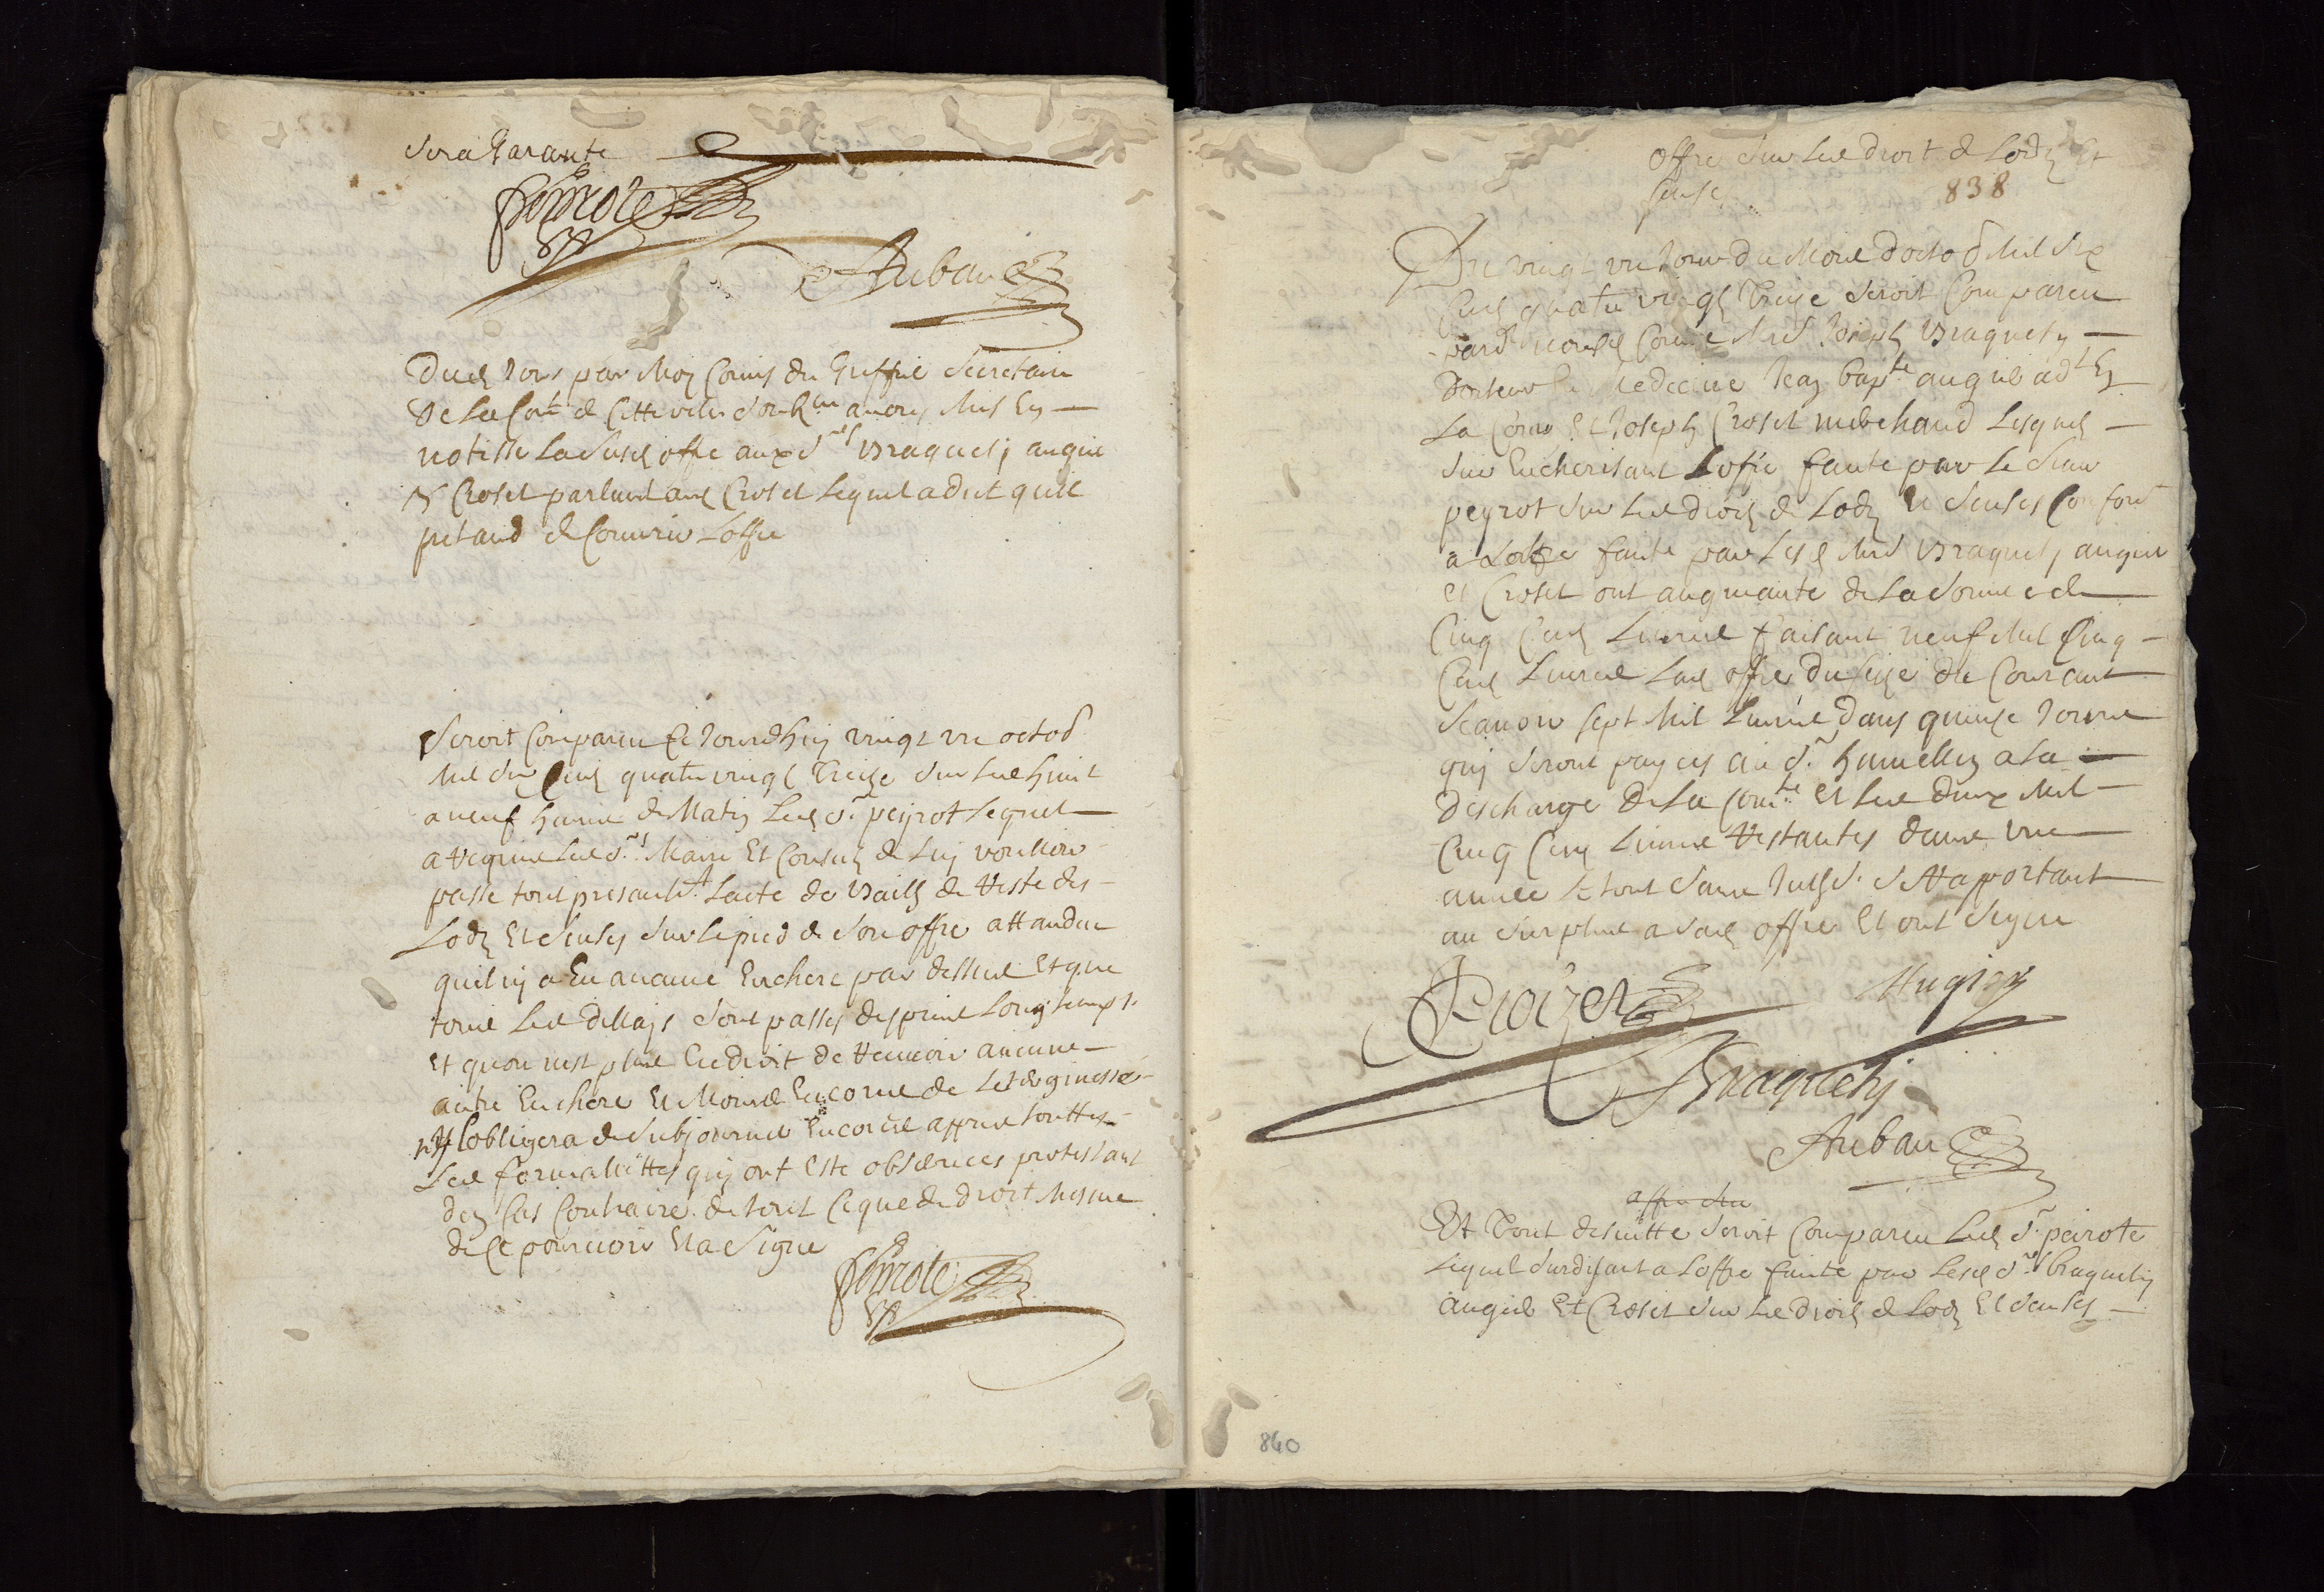 sera Garante
Peyrote
Auban
Dud jour par Moy Comis du Greffie Secretaire
De La Com.te de Cette ville soubz.ne avons Mis En
notisse La Susd offre aux s.rs Braquety augier
& Croset parlant aud Croset Lequel a dit quil
pretand de Couvrir Loffre
Seroit Compareu Ce Jourdhuy vingt un octob
Mil six Cens quatre vingt Treize sur Les huit
a neuf heures du Matin Led s.r peyrot Lequel
a Requis Les s.rs Maire Et Consuls de Luy voulloir
passe tout presantem.t Lacte de Bailh du Reste des
Lodz Et Senses sur Le pied de son offre attandeu
quil ny a Eu aucune Enchere par dessus Et que
tous Les dellays sont passes despuis Long temps
Et quon nest plus En droit de Recevoir aucune
autre Enchere Et Moins Encores de
ny Lobligera de Subjourner Encores appres Touttes
Les formalittes quy ont Este observees protestant
den Cas Contraire de tout Ce que de droit Mesme
de se pourvoir Et a Signe
Peyrote
offre sur Les droit de Lodz Et
sense
838
Du vingt un Jour du Mois doctob Mil six
Cens quatre vingt Treize seroit Compareu
pard nous Come Joseph Braquety
Docteur En Medecine Jean bap.te augier ad.t En
La Cour Et Joseph Croset merchand Lesquels
sur Encherissant Loffre faite par Le sieur
peyrot sur Les droits de Lodz Et Senses Conform
a Loffre faite par Lesd Braquety augier
Et Croset ont augmante de La Somme de
Cinq Cens Livres faisant neuf Mil Cinq
Cens Livres Lad offre du seize du Courant
scavoir sept Mil Livres dans quinze Jours
quy seront payes au s.r hamellin a La
descharge de La Com.te Et Les deux Mil
Cinq Cens Livres Restantes dans une
annee Le tout sans se Rapportant
au surplus a sad offre Et ont signe
Crozet
Augier
Braquety
Auban
Et Tout desuitte seroit Compareu Led s.r peirote
Lequel surdisant a Loffre faite par Lesd s.rs braquety
augier Et Croset sur Les droits de Lodz Et senses
840